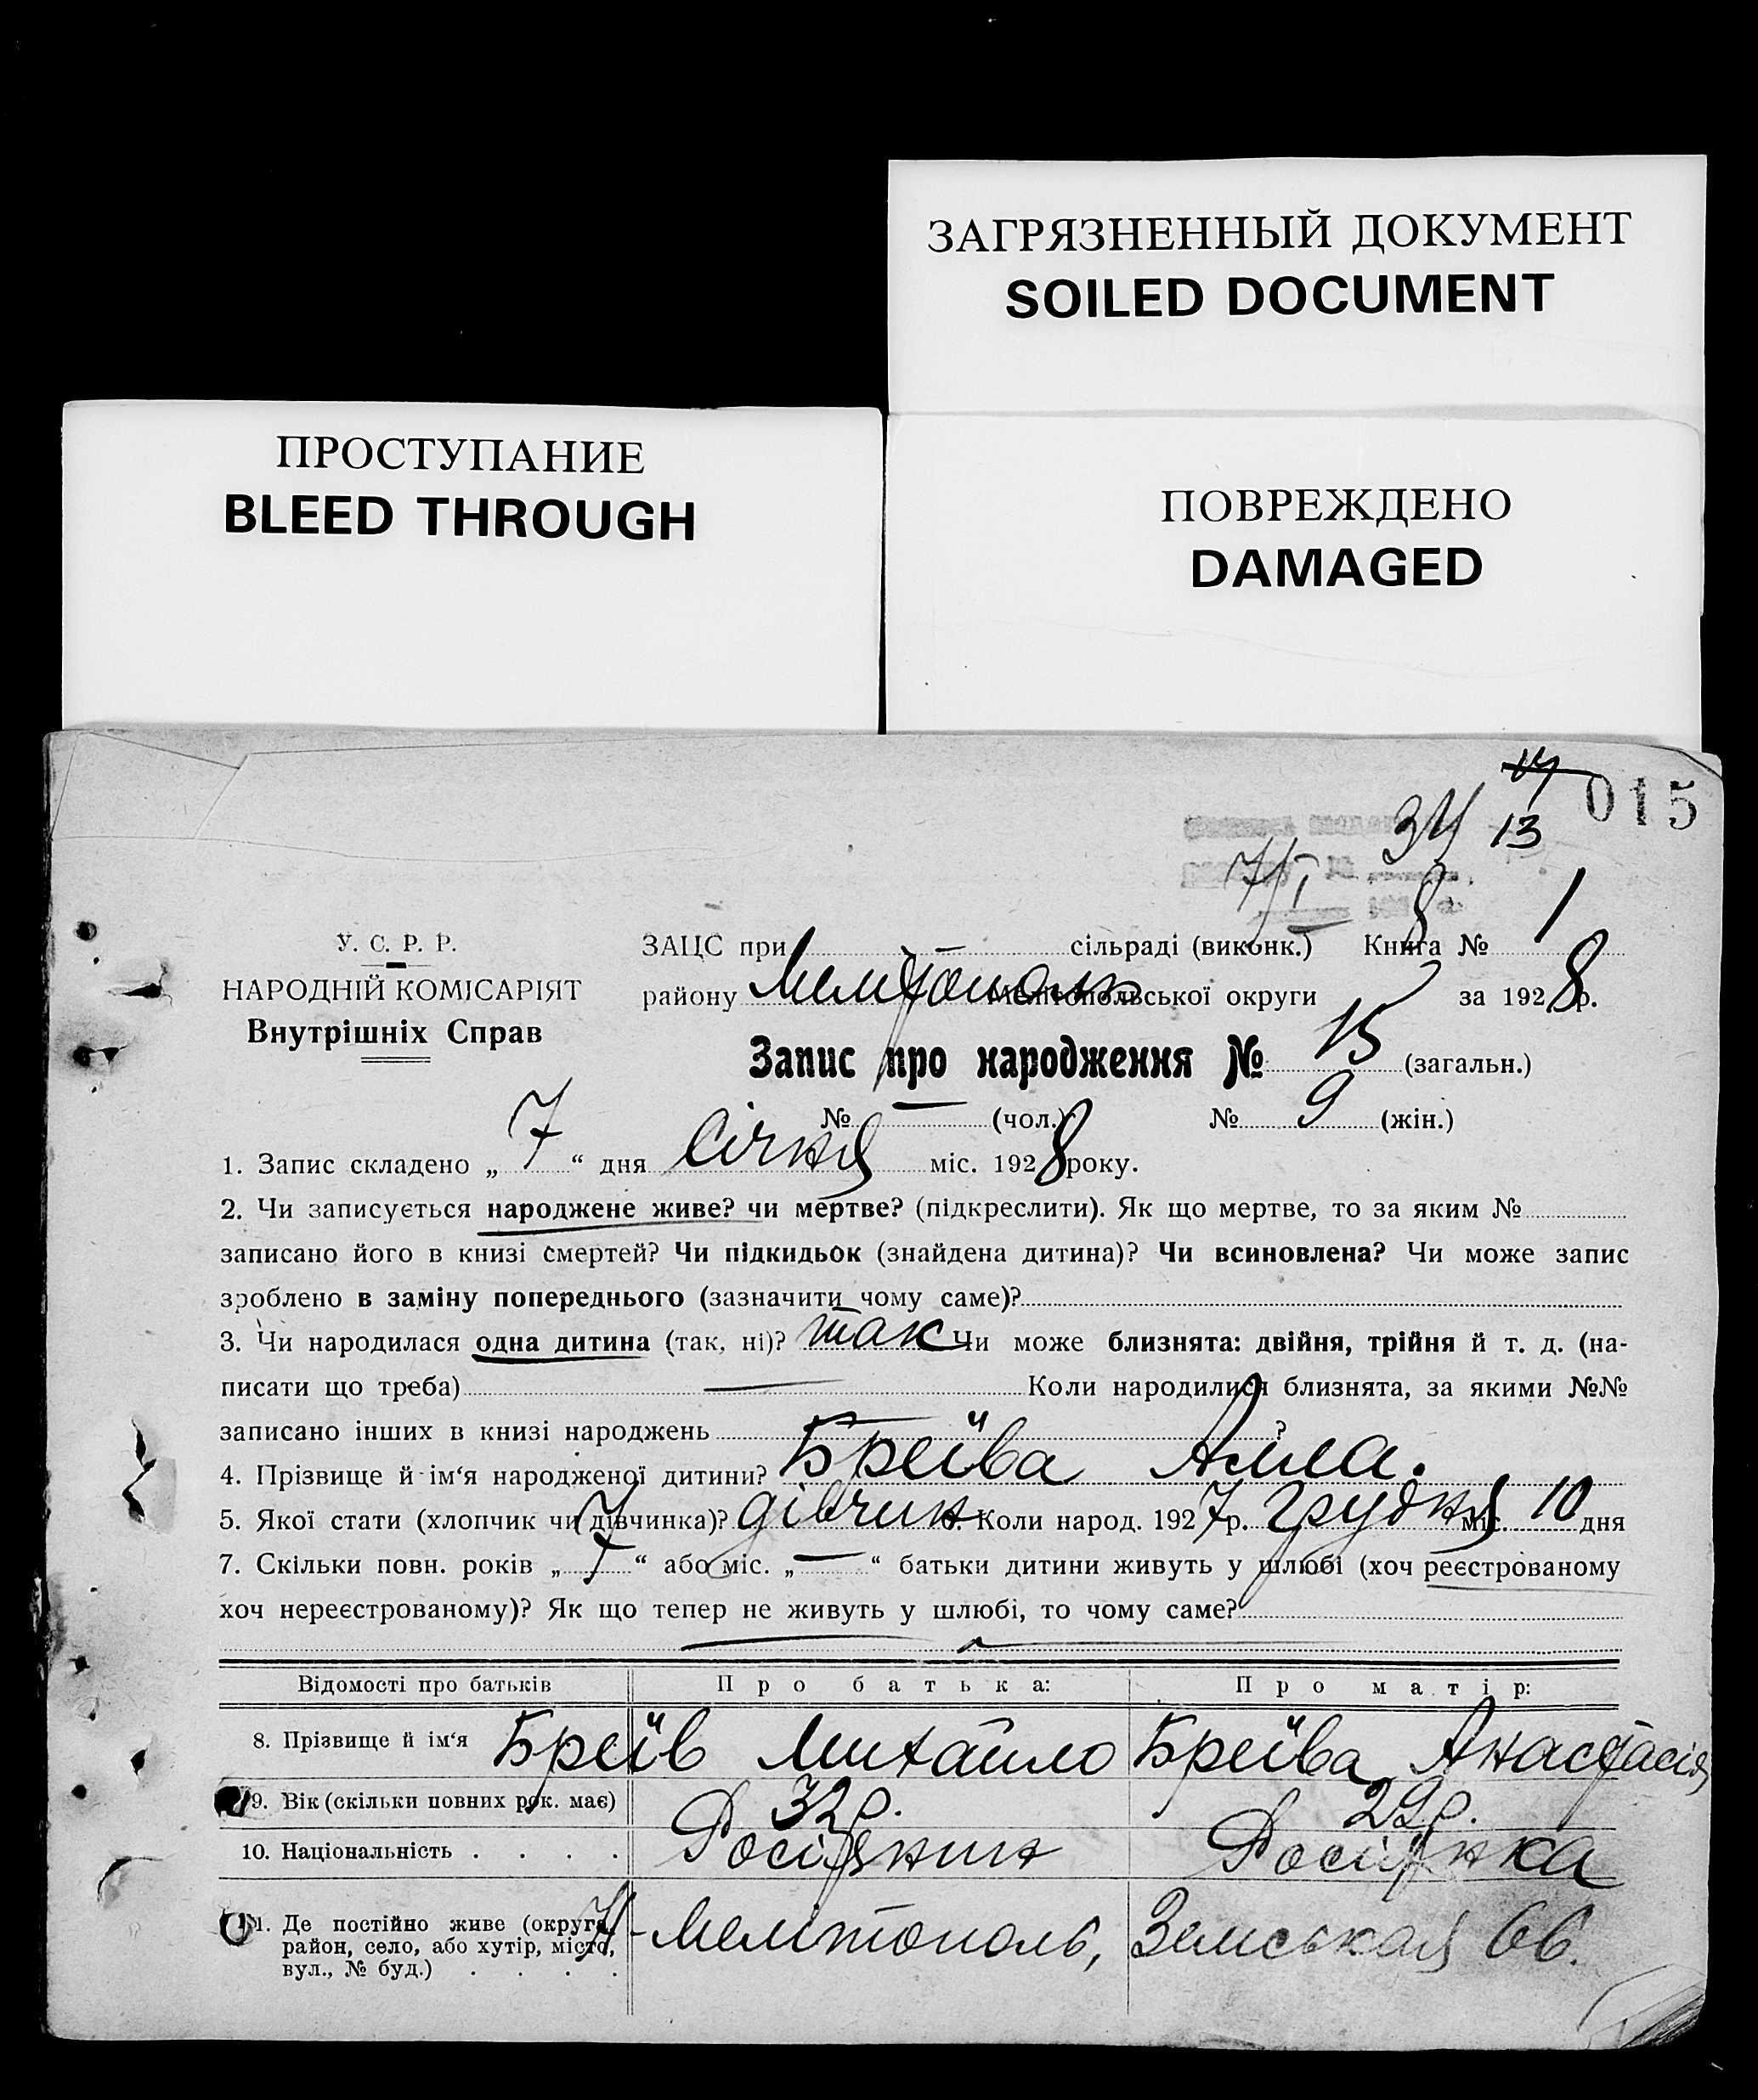 ЗАГРЯЗНЕННЫЙ ДОКУМЕНТ
SOILED DOCUMENT
ПРОСТУПАНИЕ
BLEED THROUGH
ПОВРЕЖДЕНО
DAMAGED
015
34 13
7/I 8
У. С. Р. Р.
НАРОДНІЙ КОМІСАРІЯТ
Внутрішніх Справ
ЗАЦС при сільраді (виконк.) Книга № 1
району Мелітополь Мелітопольської округи за 1928 р.
Запис про народження № 15 (загальн.)
№ — (чол.) № 9 (жін.)
1. Запис складено „7“ дня Січня міс. 1928 року.
2. Чи записується народжене живе? чи мертве? (підкреслити). Як що мертве, то за яким №
записано його в книзі смертей? Чи підкидьок (знайдена дитина)? Чи всиновлена? Чи може запис
зроблено в заміну попереднього (зазначити чому саме)?
3. Чи народилася одна дитина (так, ні)? так Чи може близнята: двійня, трійня й т. д. (на-
писати що треба) — Коли народилися близнята, за якими №№
записано інших в книзі народжень ?
4. Прізвище й ім‘я народженої дитини? Бреїва Алла.
5. Якої стати (хлопчик чи дівчинка)? дівчин. Коли народ. 1927 р. грудня міс. 10 дня
7. Скільки повн. років „7“ або міс. „—“ батьки дитини живуть у шлюбі (хоч реєстрованому
хоч нереєстрованому)? Як що тепер не живуть у шлюбі, то чому саме?
Відомості про батьків Про батька: Про матір:
8. Прізвище й ім‘я Бреїв Михайло Бреїва Анастасія
9. Вік (скільки повних рок. має) 32 р. 29 р.
10. Національність . . . . Росіянин Росіянка
11. Де постійно живе (округа,
район, село, або хутір, місто,
вул., № буд.) . . . .
Мелітополь, Земськая 66.